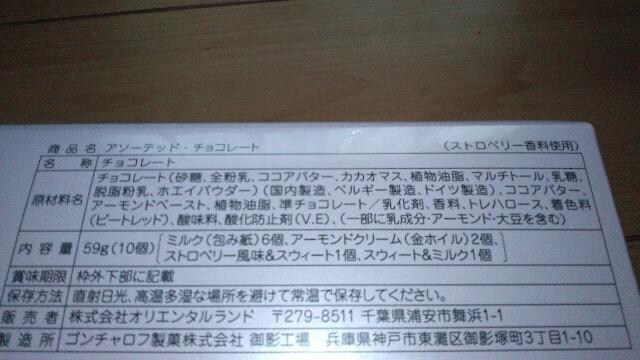 商品名 アソーテッド・チョコレート (ストロベリー香料使用)
名 称 チョコレート
原材料名 チョコレート(砂糖、全粉乳、ココアバター、カカオマス、植物油脂、マルチトール、乳糖、
脱脂粉乳、ホエイパウダー)(国内製造、ベルギー製造、ドイツ製造)、ココアバター、
アーモンドペースト、植物油脂、準チョコレート/乳化剤、香料、トレハロース、着色料
(ビートレッド)、酸味料、酸化防止剤(V.E)、(一部に乳成分・アーモンド・大豆を含む)
内容量 59g(10個) ミルク(包み紙)6個、アーモンドクリーム(金ホイル)2個、
ストロベリー風味&スウィート1個、スウィート&ミルク1個
賞味期限 枠外下部に記載
保存方法 直射日光、高温多湿な場所を避けて常温で保存してください。
販売者 株式会社オリエンタルランド 〒279-8511 千葉県浦安市舞浜1-1
製造所 ゴンチャロフ製菓株式会社 御影工場 兵庫県神戸市東灘区御影塚町3丁目1-10